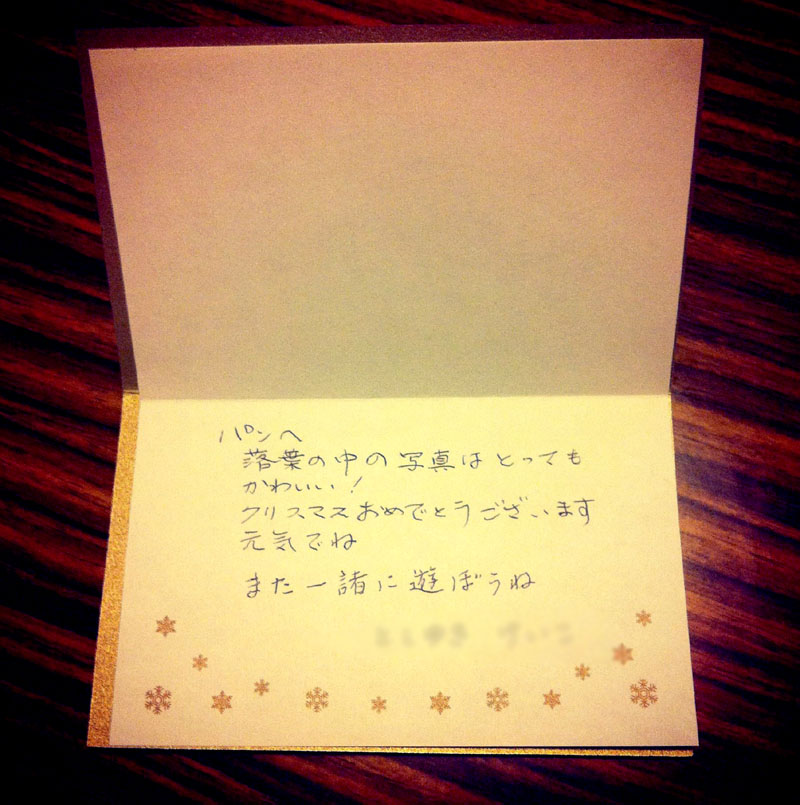 パンへ
落葉の中の写真はとっても
かわいい!
クリスマスおめでとうございます
元気でね
また一諸に遊ぼうね